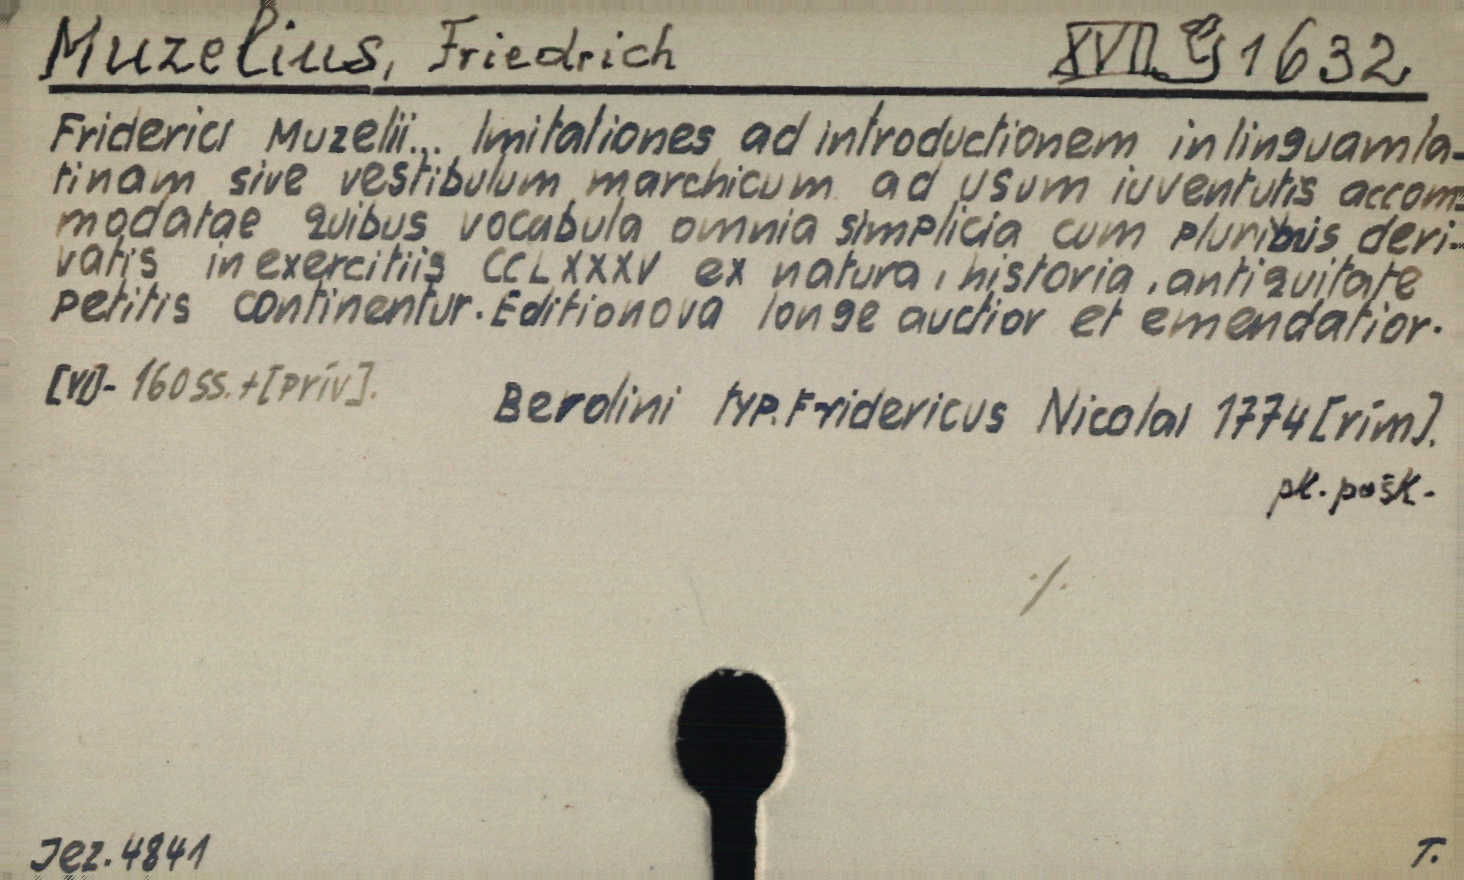 Muzelius, Friedrich XVII G 1632
Friderici Muzelii... Imitationes ad introductionem in linguam la-
tinam sive vestibulum marchicum ad usum iuventutis accom-
modatae quibus vocabula omnia simplicia cum pluribus deri-
vatis in exercitiis CCLXXXV ex natura, historia, antiquitate
petitis continentur. Editio nova longe auctior et emendatior.
[VI]- 160 ss. + [priv].
Berolini typ. Fridericus Nicolai 1774 [rím].
pk. pošk.
./.
Jez. 4841 T.